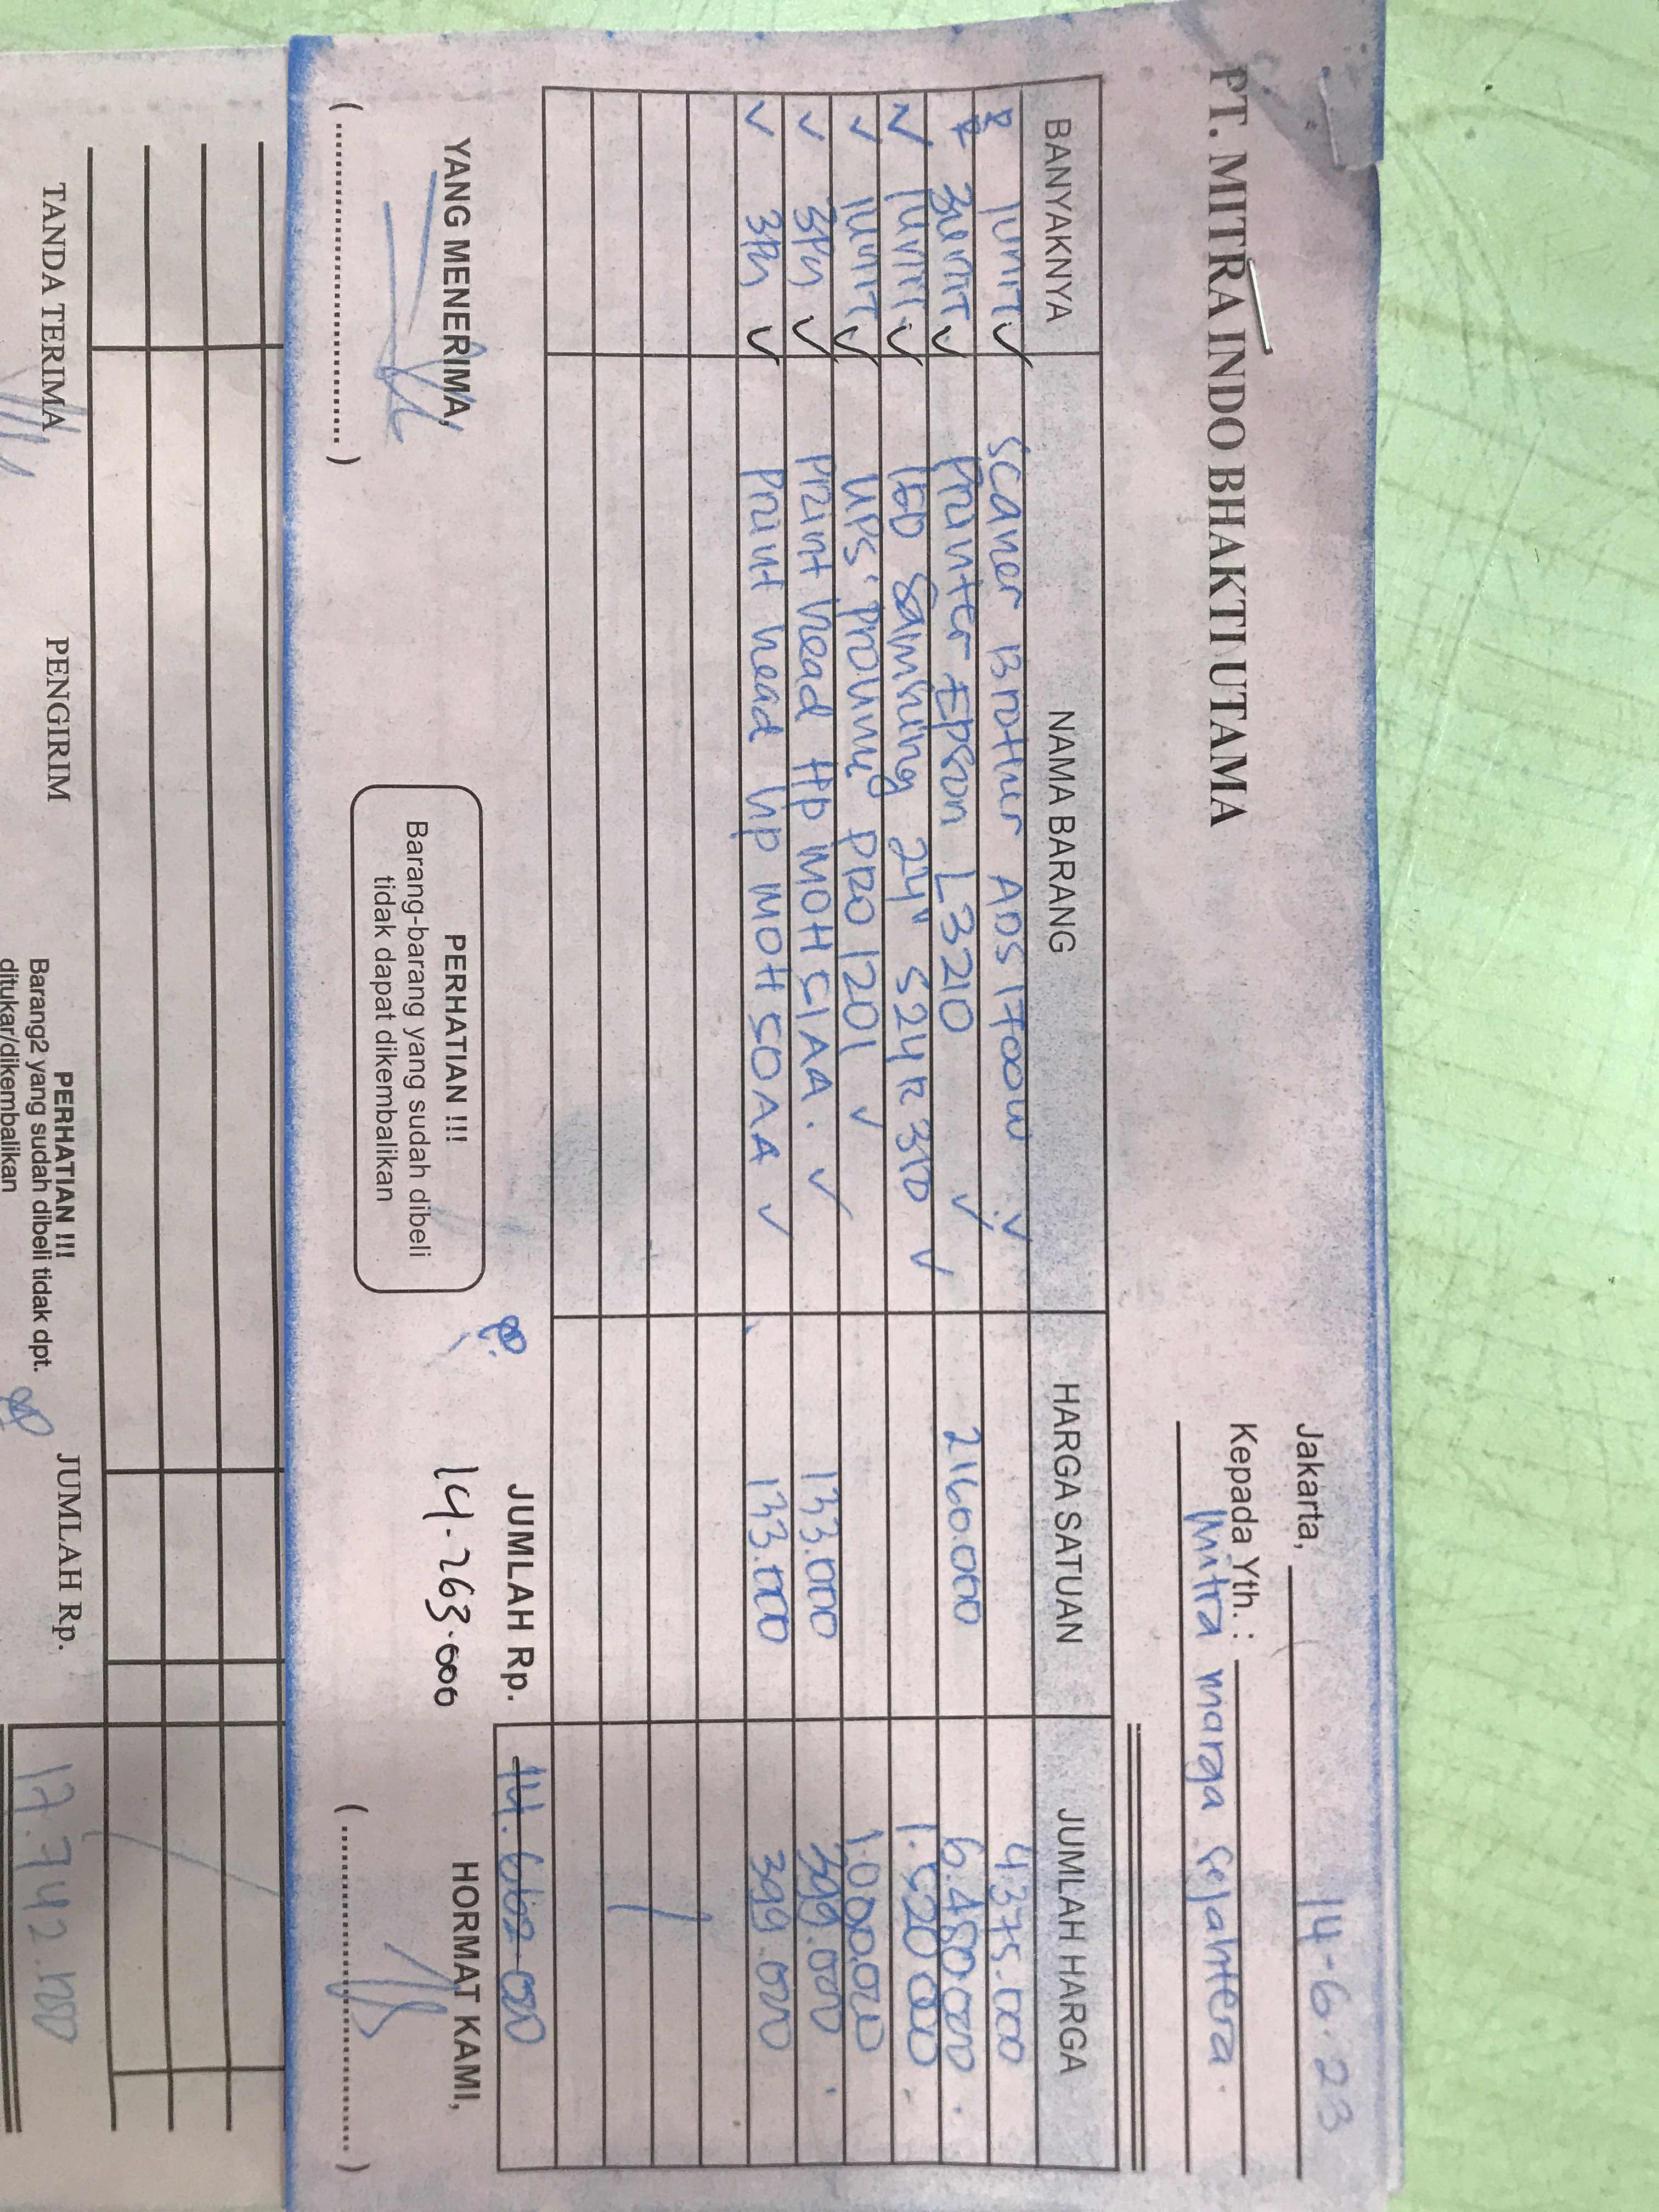 PT. MITRA INDO BHAKTI UTAMA
Jakarta, 14-6-23
Kepada Yth. :
Mitra marga sejahtera.
BANYAKNYA NAMA BARANG HARGA SATUAN JUMLAH HARGA
1 unit Scaner Brother ADS 1700W 4.375.000
3 unit Printer Epson L3210 2160.000 6.480.000
1 unit LED Samsung 24" S24R31D 1.520.000
1 unit UPS Prolink PRO 1201 1.000.000
3 Pcs Print head Hp MOH51AA. 133.000 399.000
3 Pcs Print head hp MOH50AA 133.000 399.000
JUMLAH Rp. 14.662.000
14.263.000
YANG MENERIMA,
PERHATIAN !!!
Barang-barang yang sudah dibeli
tidak dapat dikembalikan
HORMAT KAMI,
(........................) (........................)
TANDA TERIMA PENGIRIM
PERHATIAN !!!
Barang2 yang sudah dibeli tidak dpt.
ditukar/dikembalikan
JUMLAH Rp. 17.742.100